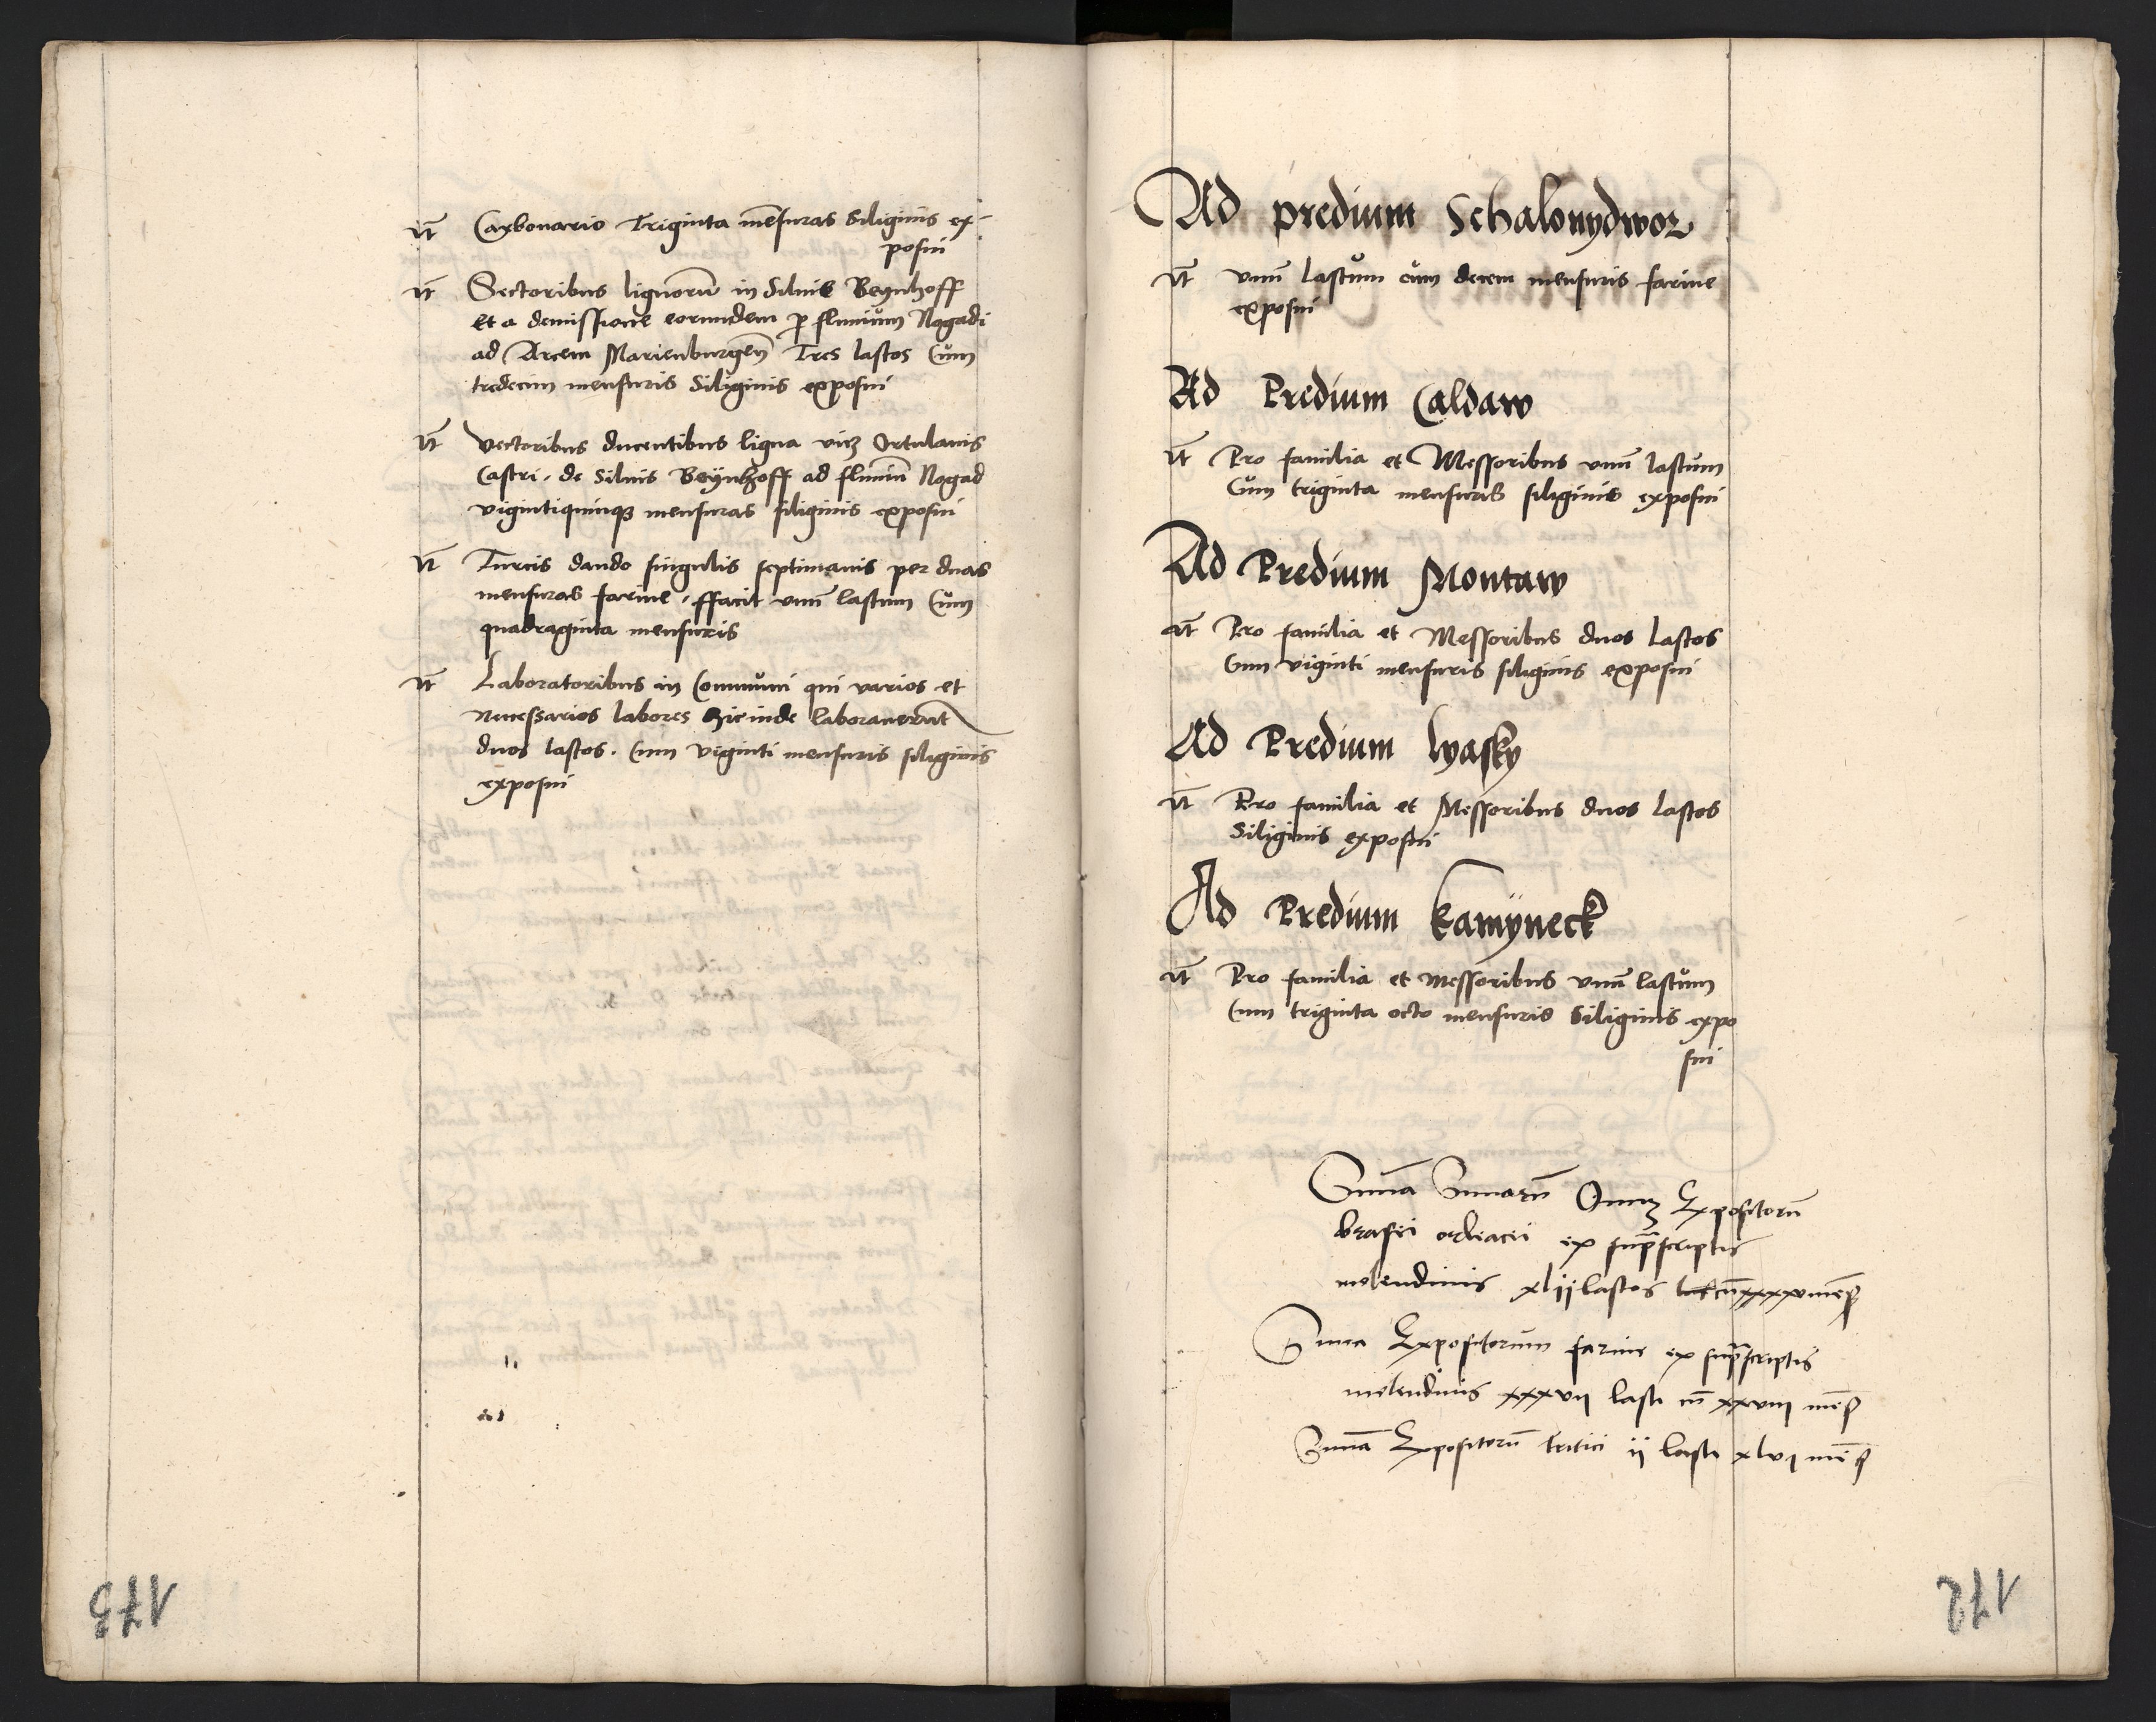 Itm Carbonario Triginta mēsuras Siliginis ex-
posui
Itm Sectoribus lignorū in Siluis Beynhoff
Et a demissione eorundem p fluuium Nogadi
ad Arcem Marienburgeñ Tres lastos Cum
tredecim mensuris Siliginis exposui
Itm Vectoribus ducentibus ligna viz Ortulanis
Castri, de Siluis Beynhoff ad fluuiū Nogad
vigintiquinqz mensuras siliginis exposui
Itm Turcis dando singulis septimanis per duas
mensuras farine, ffacit vnū lastum Cum
quadraginta mensuris
Itm Laboratoribus in Communi qui varios et
necessarios labores hicinde laborauerūt
duos lastos. Cum viginti mensuris siliginis
exposui
173
Ad predium Schalonydwor
Itm vnū lastum cum decem mensuris farine
exposui
Ad Predium Caldaw
Itm Pro familia et Messoribus vnū lastum
Cum triginta mensuris siliginis exposui
Ad Predium Montaw
Itm Pro familia et Messoribus duos lastos
Cum viginti mensuris siliginis exposui
Ad Predium lyasky
Itm Pro familia et Messoribus duos lastos
Siliginis exposui
Ad Predium Kamÿneck
Itm Pro familia et messoribus vnū lastum
Cum triginta octo mensuris Siliginis expo
sui
Suma Sumarū Omz Expositorū
brasei ordeacei ex supscriptis
molendinis xlij lastos cū xxxxv mēs
Suma Expositorum farine ex supscriptis
molendinis xxxvij lasti cū xxviij mēs
Suma Expositorū tritici ij lasti xlvj mēs
172